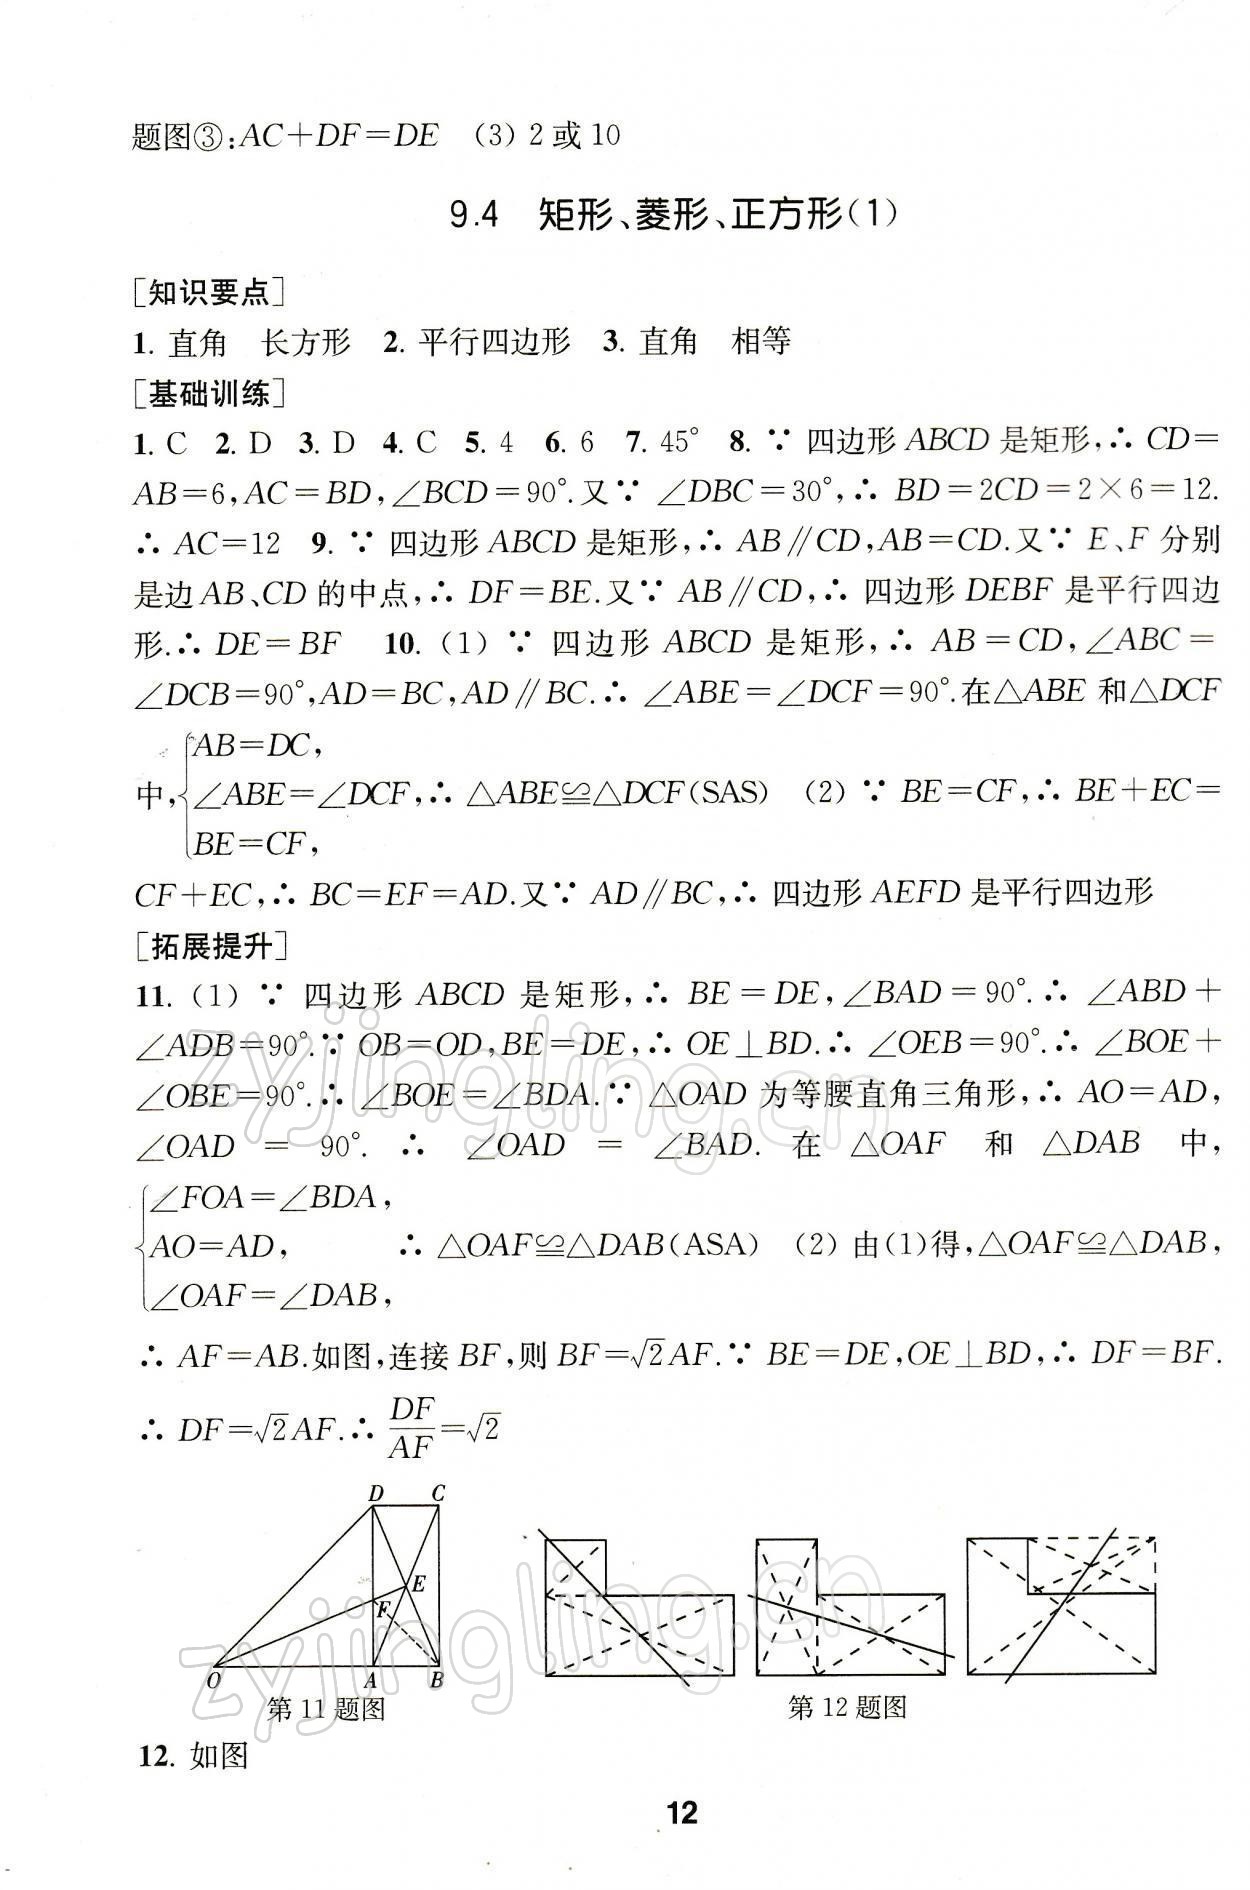 题图③:AC+DF=DE (3) 2或10
9.4 矩形、菱形、正方形(1)
[知识要点]
1. 直角 长方形 2. 平行四边形 3. 直角 相等
[基础训练]
1. C 2. D 3. D 4. C 5. 4 6. 6 7. 45° 8. ∵ 四边形 ABCD 是矩形,∴ CD=
AB=6,AC=BD,∠BCD=90°.又∵ ∠DBC=30°,∴ BD=2CD=2×6=12.
∴ AC=12 9. ∵ 四边形 ABCD 是矩形,∴ AB∥CD,AB=CD.又∵ E、F 分别
是边 AB、CD 的中点,∴ DF=BE.又∵ AB∥CD,∴ 四边形 DEBF 是平行四边
形.∴ DE=BF 10. (1) ∵ 四边形 ABCD 是矩形,∴ AB=CD,∠ABC=
∠DCB=90°,AD=BC,AD∥BC.∴ ∠ABE=∠DCF=90°.在△ABE 和△DCF
AB=DC,
中,{∠ABE=∠DCF,∴ △ABE≌△DCF(SAS) (2) ∵ BE=CF,∴ BE+EC=
BE=CF,
CF+EC,∴ BC=EF=AD.又∵ AD∥BC,∴ 四边形 AEFD 是平行四边形
[拓展提升]
11. (1) ∵ 四边形 ABCD 是矩形,∴ BE=DE,∠BAD=90°.∴ ∠ABD+
∠ADB=90°.∵ OB=OD,BE=DE,∴ OE⊥BD.∴ ∠OEB=90°.∴ ∠BOE+
∠OBE=90°.∴ ∠BOE=∠BDA.∵ △OAD 为等腰直角三角形,∴ AO=AD,
∠OAD=90°.∴ ∠OAD=∠BAD.在△OAF 和△DAB 中,
∠FOA=∠BDA,
{AO=AD, ∴ △OAF≌△DAB(ASA) (2) 由(1)得,△OAF≌△DAB,
∠OAF=∠DAB,
∴ AF=AB.如图,连接 BF,则 BF=√2AF.∵ BE=DE,OE⊥BD,∴ DF=BF.
∴ DF=√2AF.∴ DF/AF=√2
D C
E
F
O A B
第 11 题图 第 12 题图
12. 如图
12
zyjingling.cn
zyjingling.cn